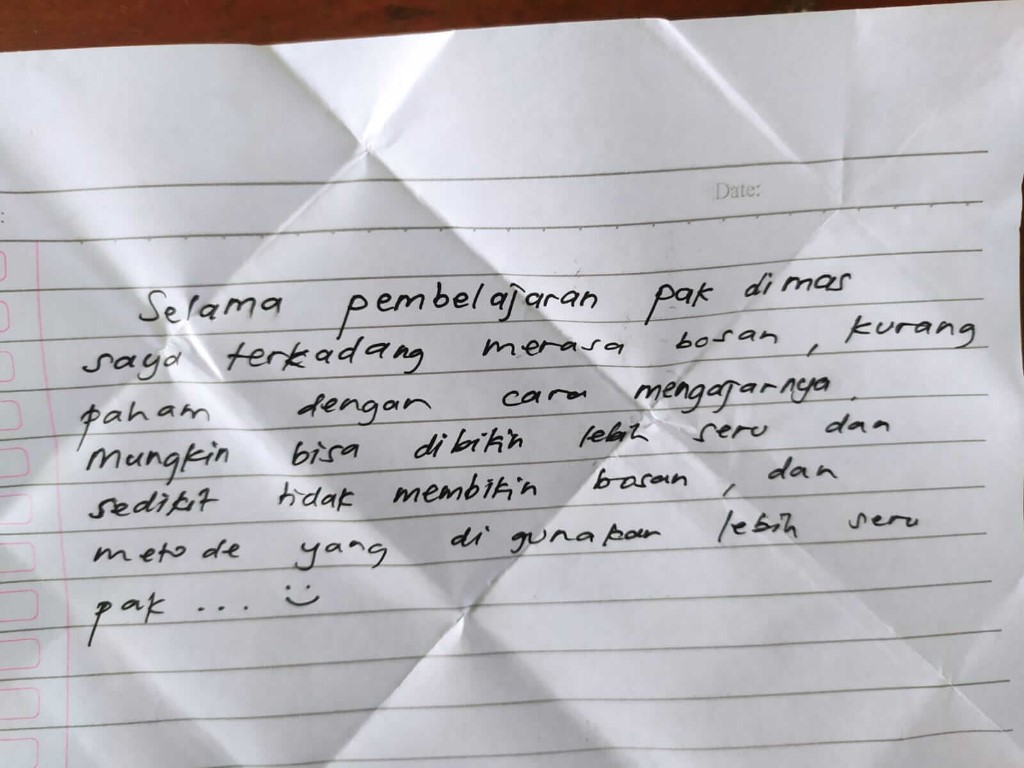 Date:
:
Selama pembelajaran pak dimas
saya terkadang merasa bosan, kurang
paham dengan cara mengajarnya.
Mungkin bisa dibikin lebih seru dan
sedikit tidak membikin bosan, dan
metode yang di gunakan lebih seru
pak ... :)